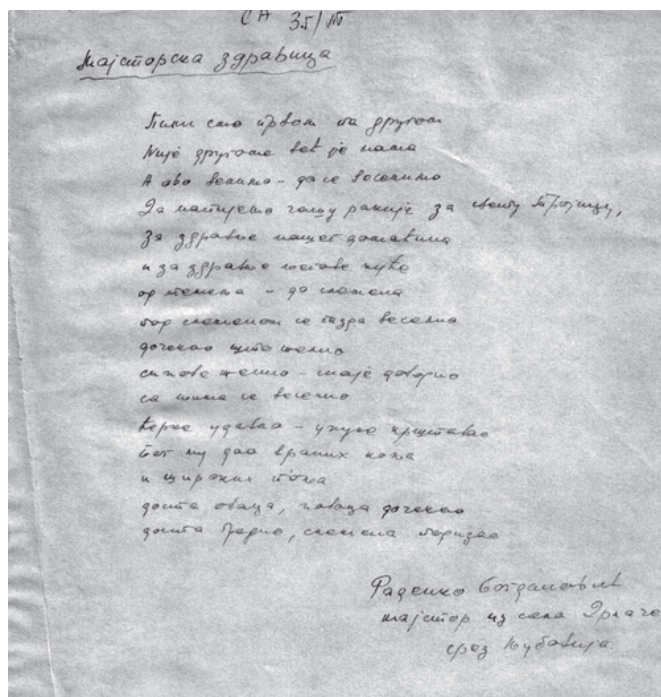 СА 35/III
Мајсторска здравица
Пили смо првом па другом
Није другоме већ је нама
А ово велимо - да се веселимо
Да напијемо чашу ракије за свету Тројицу,
за здравље нашег домаћина
и за здравље његове куће
од темена - до слемена
под слеменом се газда весели
дочекао што желио
синове женио - снаје доводио
са њима се веселио
кћерке удавао - унуке крштавао
Бог му дао враних коња
и широких поља
доста оваца, новаца дочекао
доста градио, слемена подизао
Раденко Богдановић
мајстор из села Дрлаче
срез Љубовија.